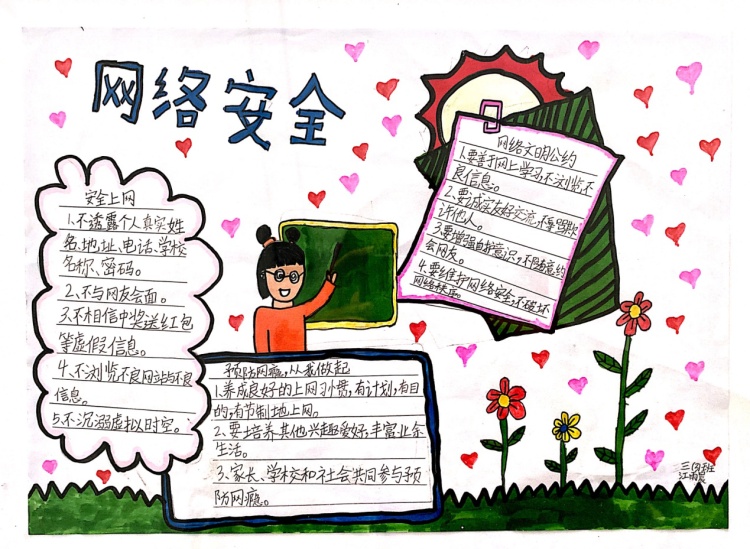 网络安全
安全上网
1.不透露个人真实姓
名、地址、电话、学校
名称、密码。
2、不与网友会面。
3、不相信中奖送红包
等虚假信息。
4、不浏览不良网站与不良
信息。
5、不沉溺虚拟时空。
网络文明公约
1.要善于网上学习,不浏览不
良信息。
2.要诚实友好交流,不辱骂欺
诈他人。
3.要增强自护意识,不随意约
会网友。
4.要维护网络安全,不破坏
网络秩序。
预防网瘾,从我做起
1.养成良好的上网习惯,有计划,有目
的,有节制地上网。
2.要培养其他兴趣爱好,丰富业余
生活。
3、家长、学校和社会共同参与预
防网瘾。
三(2)班
江雨宸